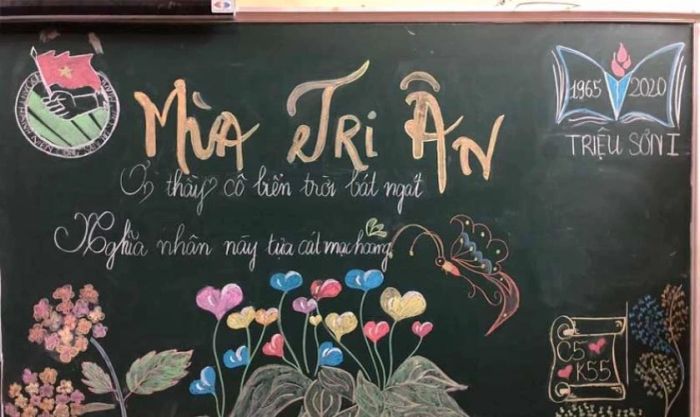 MÙA TRI ÂN
1965 2020
TRIỆU SƠN I
Ơn thầy cô biển trời bát ngát
Nghĩa nhân này tựa cát mạc hoang
C5
K55